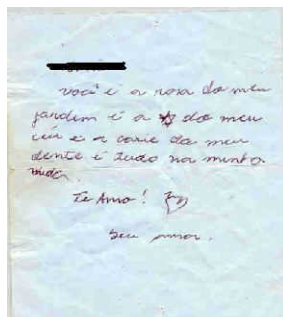 você é a rosa do meu
jardim é a do meu
céu é a carie do meu
dente é tudo na minha
vida.
Te Amo!
Seu amor.